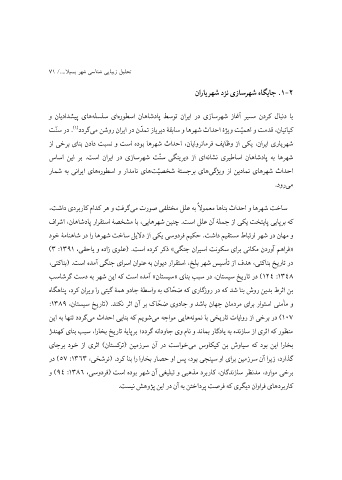 تحلیل زیبایی شناسی شهر بسیلا.../ ۷۱
۱-۲. جایگاه شهرسازی نزد شهریاران
با دنبال کردن مسیر آغاز شهرسازی در ایران توسط پادشاهان اسطوره‌ای سلسله‌های پیشدادیان و
کیانیان، قدمت و اهمیّت ویژهٔ احداث شهرها و سابقهٔ دیرباز تمدّن در ایران روشن می‌گردد. در سنّت
شهریاری ایران، یکی از وظایف فرمانروایان، احداث شهرها بوده است و نسبت دادن بنای برخی از
شهرها به پادشاهان اساطیری نشانه‌ای از دیرینگی سنّت شهرسازی در ایران است. بر این اساس
احداث شهرهای نمادین از ویژگی‌های برجستهٔ شخصیّت‌های نامدار و اسطوره‌های ایرانی به شمار
می‌رود.
ساخت شهرها و احداث بناها معمولاً به علل مختلفی صورت می‌گرفت و هر کدام کاربردی داشت،
که برپایی پایتخت یکی از جملهٔ آن علل است. چنین شهرهایی، با مشخصهٔ استقرار پادشاهان، اشراف
و مهان در شهر ارتباط مستقیم داشت. حکیم فردوسی یکی از دلایل ساخت شهرها را در شاهنامهٔ خود
«فراهم آوردن مکانی برای سکونتِ اسیران جنگی» ذکر کرده است. (علوی زاده و یاحقی، ۱۳۹۱: ۳)
در تاریخ بناکتی، هدف از تأسیس شهر بلخ، استقرار دیوان به عنوان اسرای جنگی آمده است. (بناکتی،
۱۳۴۸: ۱۲۴) در تاریخ سیستان، در سبب بنای «سیستان» آمده است که این شهر به دست گرشاسب
بن اثرط بدین روش بنا شد که در روزگاری که ضحّاک به واسطهٔ جادو همهٔ گیتی را ویران کرد، پناهگاه
و مأمنی استوار برای مردمان جهان باشد و جادوی ضحّاک بر آن اثر نکند. (تاریخ سیستان، ۱۳۸۹:
۱۰۷) در برخی از روایات تاریخی با نمونه‌هایی مواجه می‌شویم که بنایی احداث می‌گردد تنها به این
منظور که اثری از سازنده به یادگار بماند و نام وی جاودانه گردد؛ برپایهٔ تاریخ بخارا، سبب بنای کهندژ
بخارا این بود که سیاوش بن کیکاوس می‌خواست در آن سرزمین (ترکستان) اثری از خود برجای
گذارد، زیرا آن سرزمین برای او سپنجی بود، پس او حصار بخارا را بنا کرد. (نرشخی، ۱۳۶۳: ۵۷) در
برخی موارد، مدنظر سازندگان، کاربرد مذهبی و تبلیغی آن شهر بوده است (فردوسی، ۱۳۸۶: ۹۴) و
کاربردهای فراوان دیگری که فرصت پرداختن به آن در این پژوهش نیست.